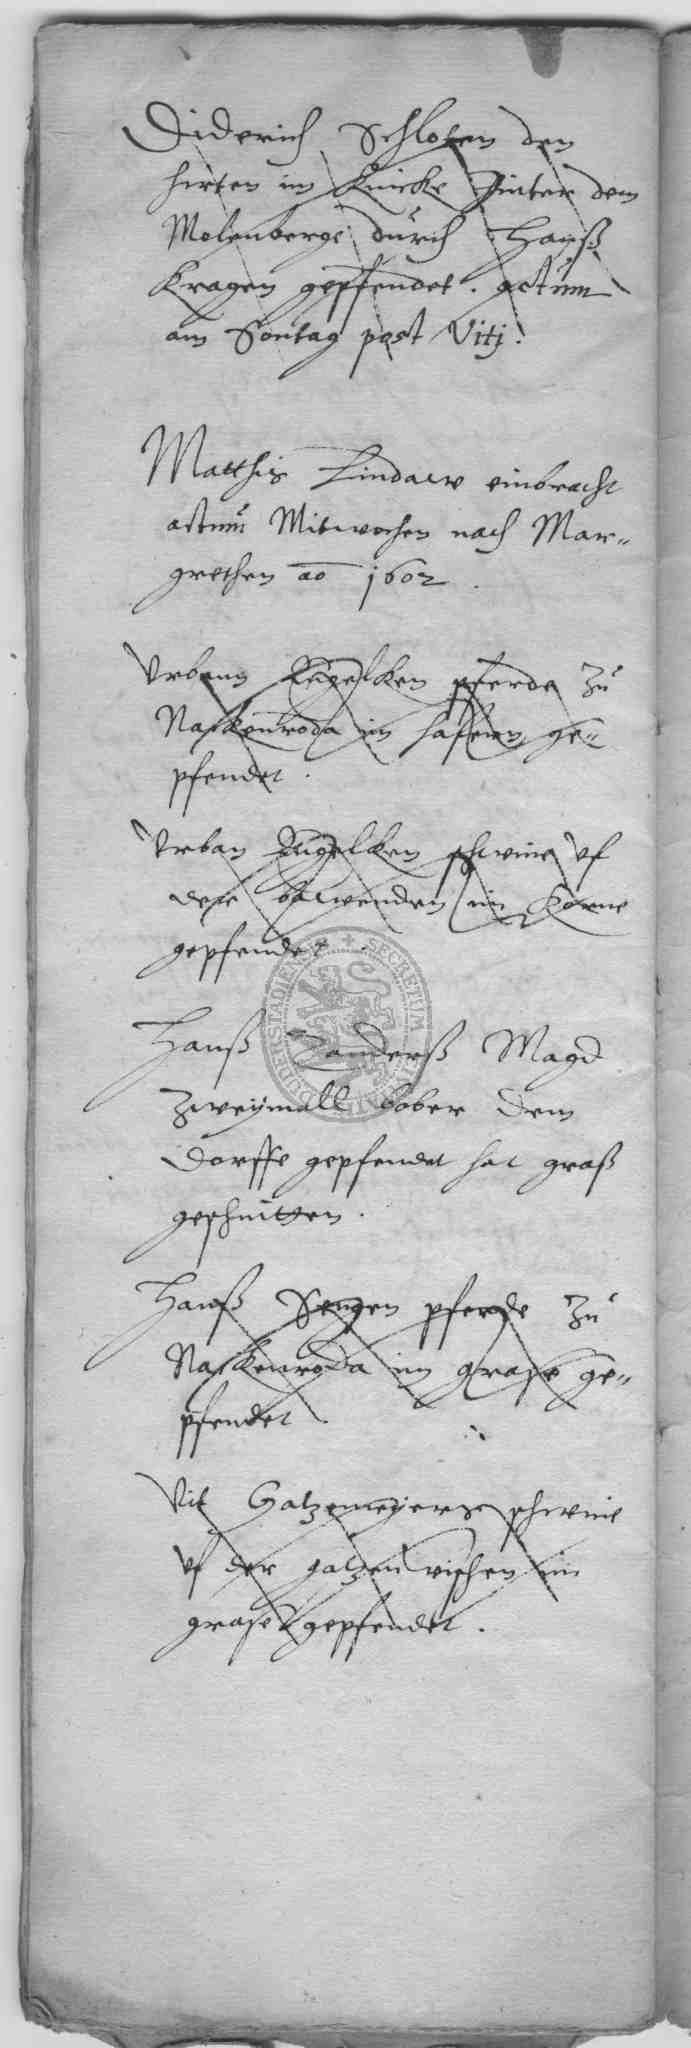 Diderich Schloten den
hirten im Knicke hinter dem
Molenberge durch Hanß
Kragen gepfendet. actum
am Sontag post Viti.
Matthis Lindaw einbracht
actum Mitwochen nach Mar-
grethen ao 1602.
Urbann Engelken pferde zu
Naskenroda im hafern ge-
pfendet.
Urban Engelken schwine uf
der im Korne
gepfendet.
Hanß Zanderß Magd
zweymall bober dem
Dorffe gepfendet hat graß
geschnitten.
Hanß Sengen pferde zu
Naskenroda im grase ge-
pfendet.
Vit Gatzemeyers schwine
uf der gatzen wischen im
grase gepfendet.
SECRETUM